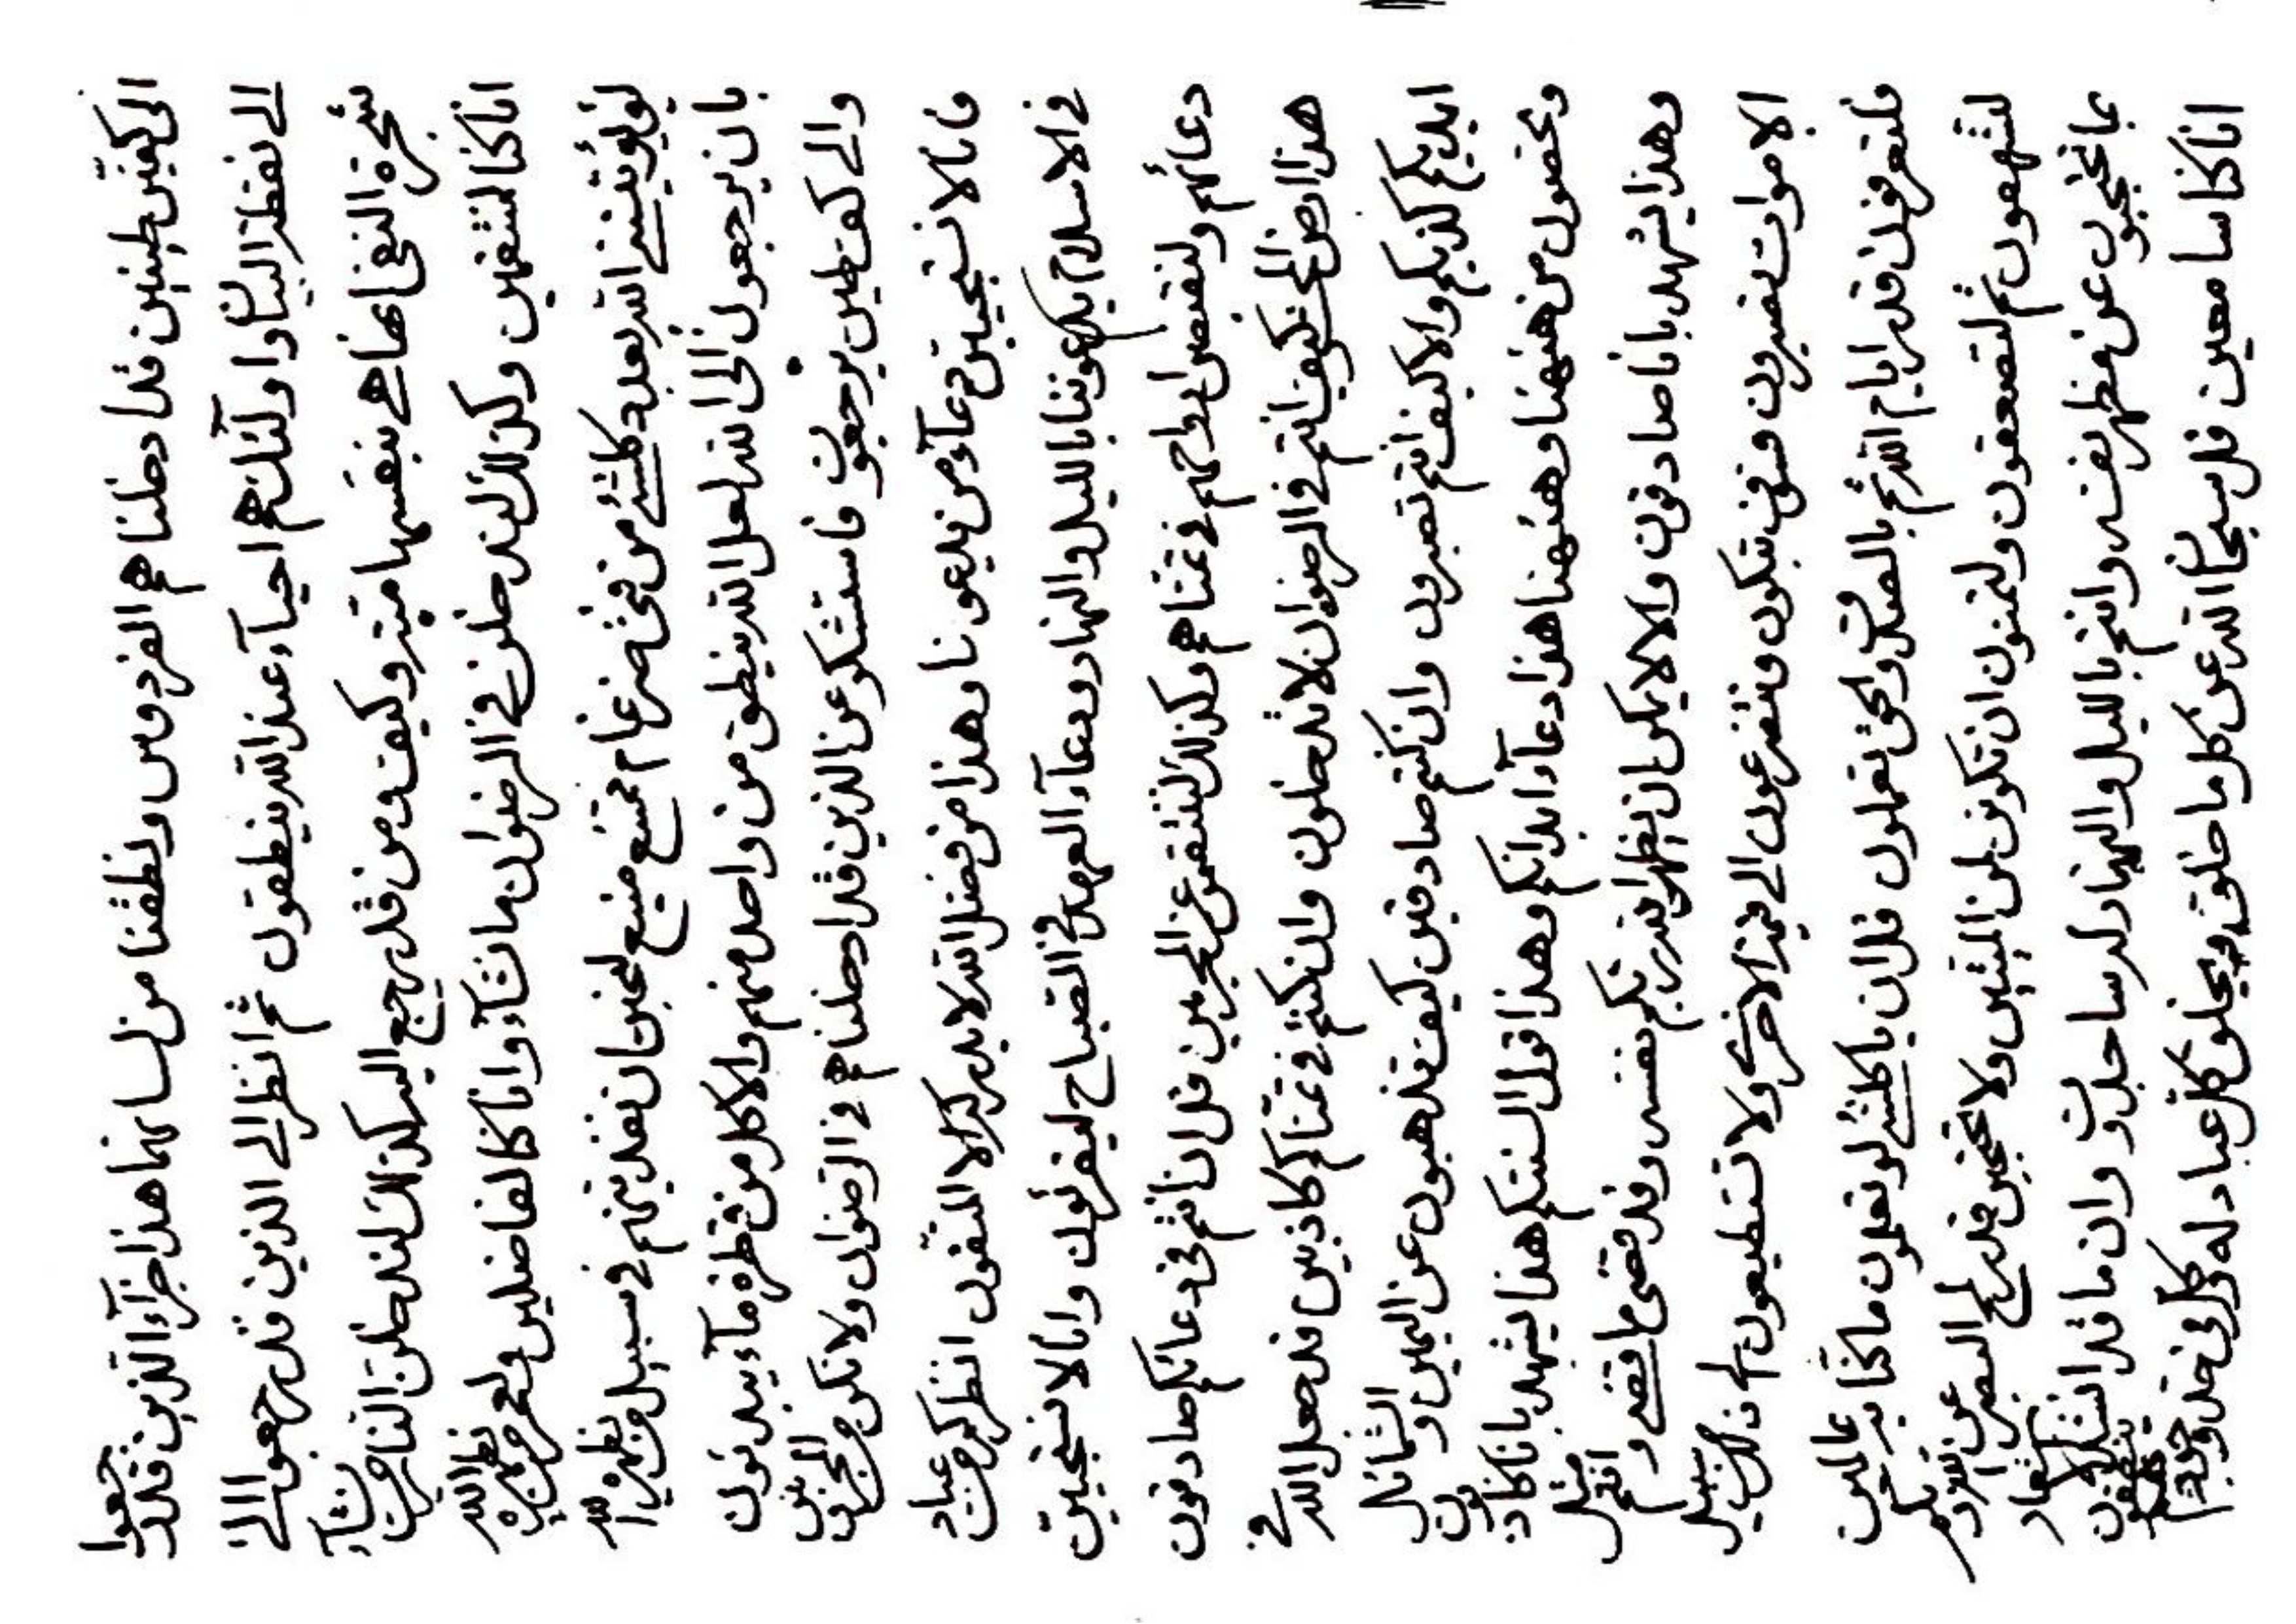 الى كفين طينين قد ادخلنا هم الفردوس ونطقنا من لسانهما هذا جزآء الذين قد رجعوا
الى نفظة البيان واولئك هم احيآء عند الله ينطقون ثم انظر الى الذين قد رجعوا الى
شجرة النفى انها هى بنفسها ميتة وكيف ومن قد رجع اليه كذلك لندخلن النار من نشآء
انا كنا لمنتقمين وكذلك لندخلن فى الرضوان من نشآء وانا كنا لفاضلين ولعمر من يظهره الله
لو يؤتينى الله بعدد كلشئ من فضة غمام ممتنع منيع لنحبن ان نفدينهم فى سبيل من يظهره الله
بان يرجعون الى الله لعل الله ينطق من واحد منهم والا كل من قطرة مآء يبدئون
والى كف طين يرجعون فاستشكر عن الذين قد ادخلناهم فى الرضوان ولا تكونن من المحزنين
فانا لا نستجيبن دعآء من يدعونا وهذا من فضل الله لا يدركه الا المتقون انظر كم من عباد
فى الاسلام يدعوننا بالليل والنهار ودعآء العهد فى الصباح ليقرئون وانا لا نستجيبن
دعائهم ولنقبض ارواحهم فى تمناهم وكذلك لننتقم عن المجرمين قل ان انتم فى دعائكم صادقون
هذا ارض الخ كيف انتم فى الرضوان لا تدخلون وان كنتم فى تمناكم كاذبين قد جعل الله فى
ايديكم كذبكم والا كيف انتم تصبرون وان كنتم صادقين كيف تذهبون عن اليمين والشمائل
وتخضون من هنيهنا وهنيهنا هذا دعآء ابدانكم وهذا قول السنتكم هذا ليشهد بانا كاذبون
وهذا يشهد بانا صادقون والا لا يمكن ان يظهر الله ربكم نفسه وقد قضى ما قضى وانتم مثل
الاموات تصبرون فسوف تبكون وتتضرعون الى قيمة الاخرى ولا تستطيعون الى ذلك من سبيل
فلتعرفون قدر ايام الله ثم بالصدق والحق تعملون قل ان يا كلشئ لو تعلمون ما كنا به عالمين
لتشهقون ثم لتصعقون ولتمنون ان تكونن لمن الميتين ولا تحتجبن قدر لمح البصر عن ربكم
بما تحتجبون عن مظهر نفسه وانتم بالليل والنهار له ساجدون وان ما قد
انا كنا سامعين قل سبحان الله عن كل ما خلق ويخلق كل عباد له وكل فى